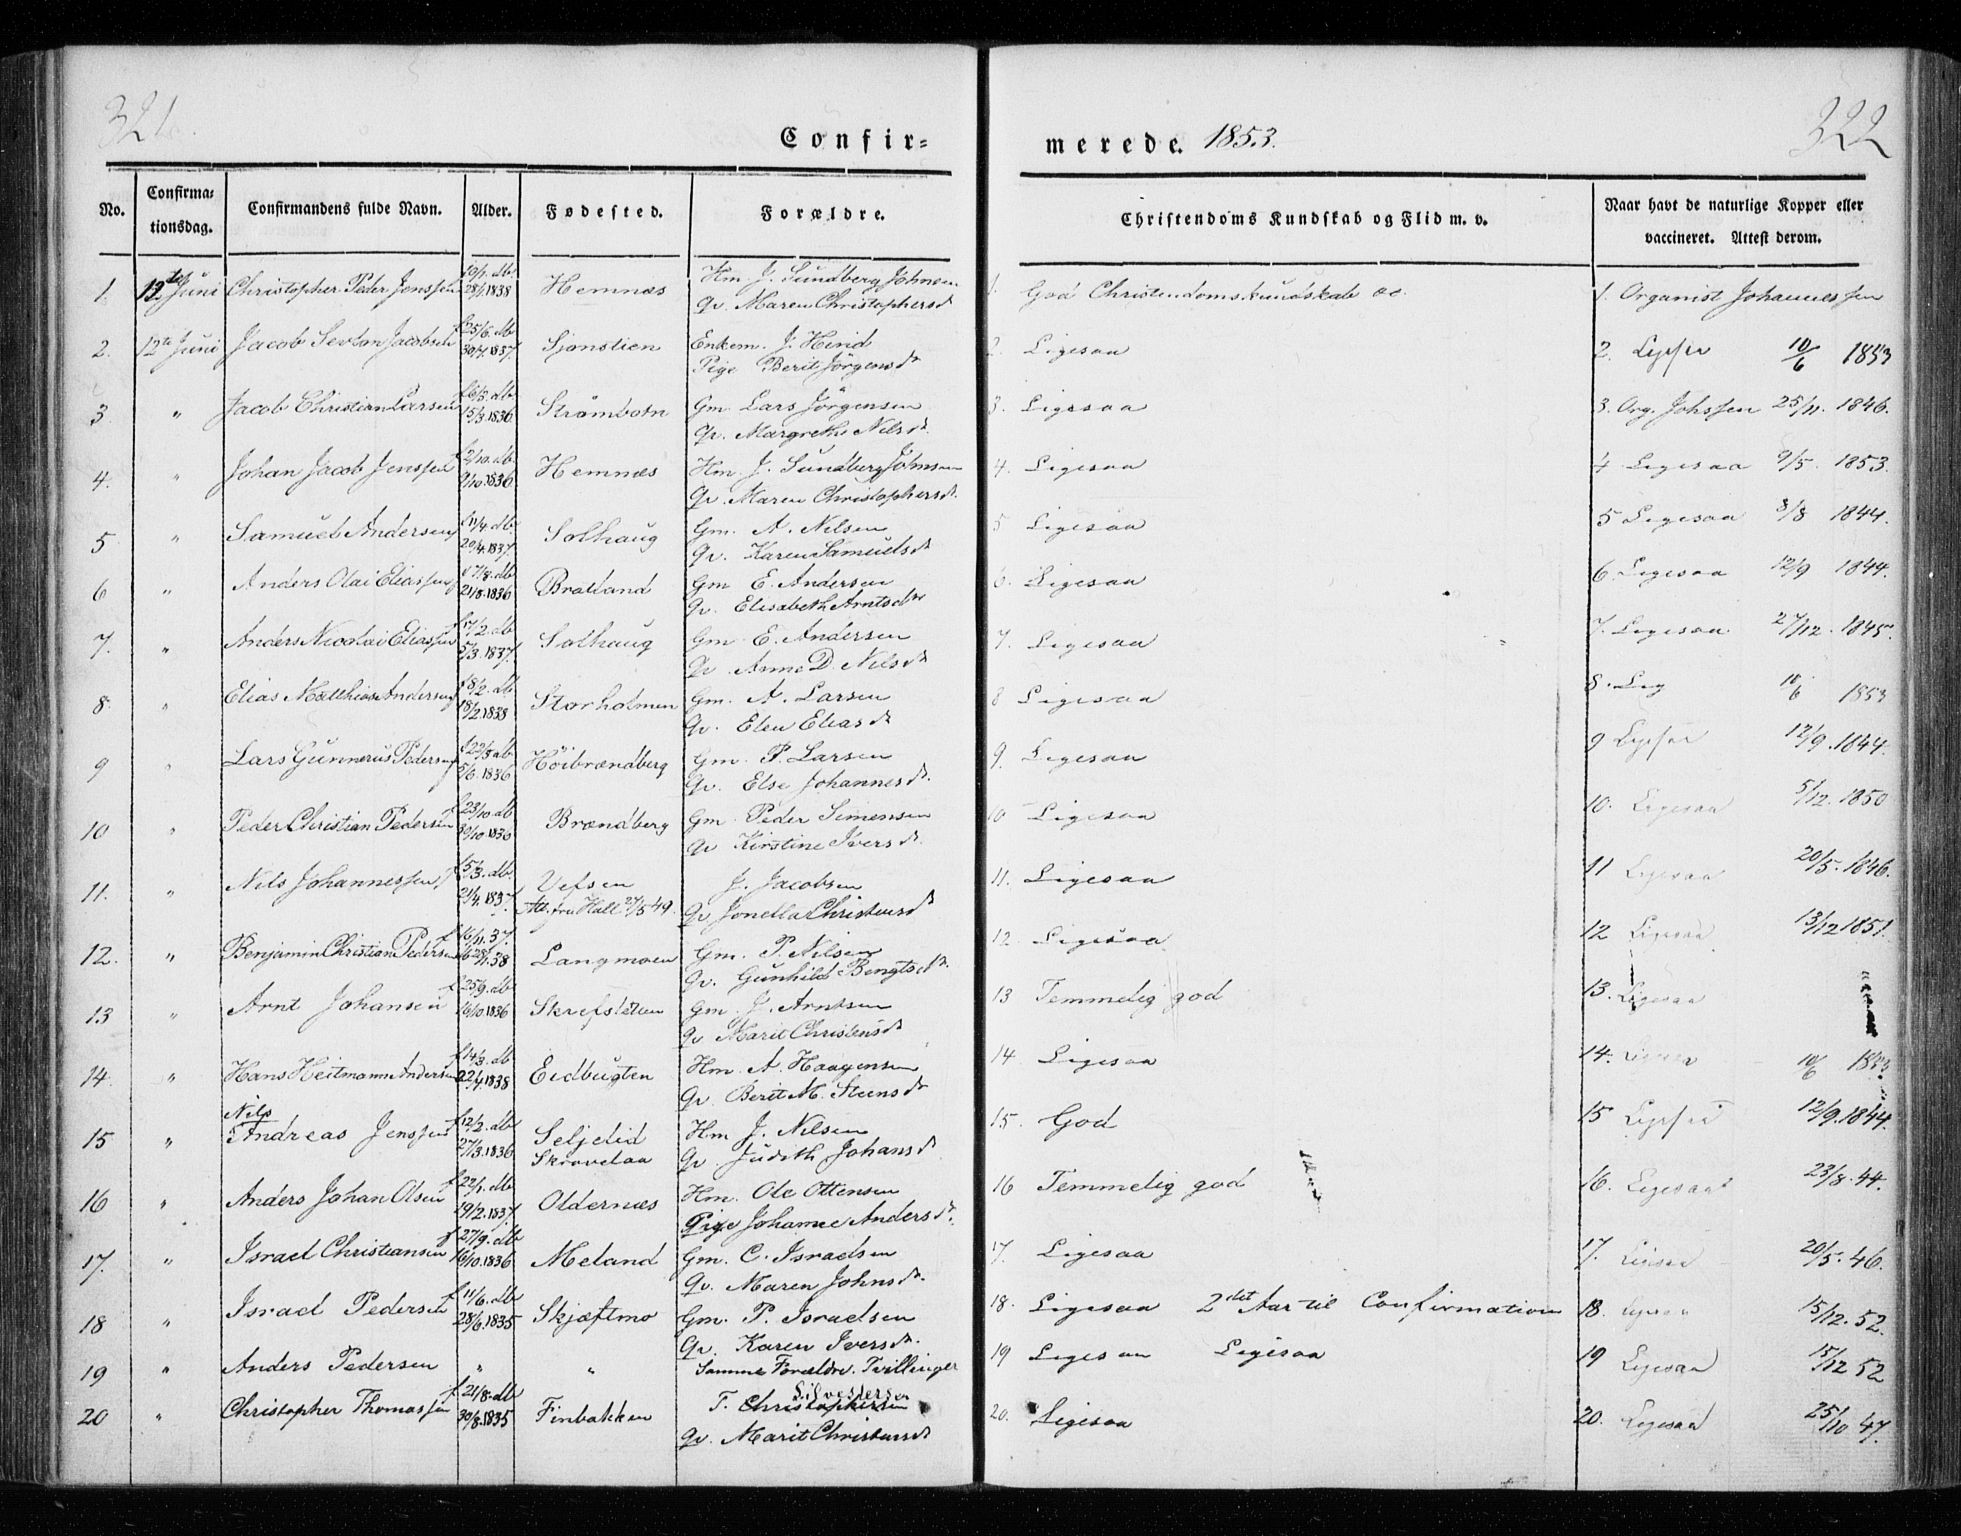 321.
322
Confir=
merede. 1853.
No.
Confirma=
tionsdag.
Confirmandens fulde Navn.
Alder.
Fødested.
Forældre.
Christendoms Kundskab og Flid m. v.
Naar havt de naturlige Kopper eller
vaccineret. Attest derom.
1. 12te Juni Christopher Peder Jenssen f 10/1. db 28/1.1838 Hemnæs Hm. J. Sundberg Johnsen
Qv. Maren Christophersd
2. 12te Juni Jacob Sevton Jacobsen f 25/6. db 30/7.1837. Sjonstien Enkem. J. Hind
Pige Berit Jörgensdr
3 " Jacob Christian Larsen f 6/3. db 15/3.1836 Strömbotn Gm. Lars Jörgensen
Qv. Margrethe Nilsdr.
4. " Johan Jacob Jenssen f 2/10. db 9/10.1836 Hemnæs Hm. J. Sundberg Johnsen
Qv. Maren Christophersdr.
5 " Samuel Andersen f 11/4. db 20/4.1837. Solhaug Gm. A. Nilsen
Qv. Karen Samuelsdr
6 " Anders Olai Eliassen f 7/8. db 21/8.1836 Bratland Gm E. Andersen
Qv. Elisabeth Arntsdr
7. " Anders Nicolai Eliassen f 17/2. db 5/3.1837. Solhaug Gm. E. Andersen
Qv. Anne D. Nilsdr
8. " Elias Matthias Andersen f 8/2. db 18/2.1838 Storholmen Gm. A. Larsen
Qv. Elen Eliasdr
9 " Lars Gunnerus Pedersen f 22/5 db 5/6.1836 Höibrændberg Gm. P. Larsen
Qv. Else Johannesdr.
10 " Peder Christian Pedersen f 23/10. db 30/10 1836 Brændberg Gm. Peder Simensen
Qv Kirstine Iversdr.
11. " Nils Johannessen f 5/3. db 21/4.1837. Vefsen J. Jacobsen
Att. fra Hall 27/5 49. Qv Jonella Christensdr
12. " Benjamin Christian Pedersen f 16/11.37. db 28/1.38 Langmoen Gm. P. Nilsen
Qv. Gunhild Bengtsdr.
13 " Arnt Johansen f 25/9. db 16/10.1836 Skrefsletten Gm. J. Arntsen
Qv Marit Christensdr
14 " Hans Heitmann Andersen f 14/3. db 22/4.1838 Eidbugten Hm. A. Haagensen
Qv. Berit M. Steensdr
Nils
15 " Andreas Jenssen f 12/2. db 27/3.1836 Seljelid Hm J. Nilsen
Skravelaa Qv. Judith Johansdr
16 " Anders Johan Olsen f 22/1. db 19/2.1837. Oldernæs Hm. Ole Ottensen
Pige Johanne Andersdr.
17. " Israel Christiansen f 27/9. db 16/10.1836 Meland Gm. C. Israelsen
Qv. Maren Johnsdr.
18 " Israel Pedersen f 11/6. db 28/6.1835 Skjæftmo Gm. P. Israelsen
Qv. Karen Iversdr.
19 " Anders Pedersen " " Samme Forældre. Tvillinger
Silvestersen
20 " Christopher Thomassen f 21/8. db 30/8.1835 Finbakken T. Christophersen
Qv. Marit Christensdr
1. God Christendomskundskab &c. 1. Organist Johannessen
2. Ligesaa 2. Ligesaa 10/6 1853
3. Ligesaa 3. Org. Johssen 25/11. 1846.
4. Ligesaa 4 Ligesaa 9/5. 1853.
5 Ligesaa 5 Ligesaa 8/8 1844.
6. Ligesaa 6 Ligesaa 12/9 1844.
7. Ligesaa 7. Ligesaa 27/12. 1845.
8 Ligesaa 8. Lig 10/6 1853
9. Ligesaa 9 Ligesaa 12/9. 1844.
10 Ligesaa 10. Ligesaa 5/12. 1850
11. Ligesaa 11 Ligesaa 20/5. 1846.
12. Ligesaa 12 Ligesaa 13/12 1851.
13 Temmelig god 13. Ligesaa
14. Ligesaa 14. Ligesaa 10/6 1853.
15. God 15 Ligesaa 12/9.1844.
16 Temmelig god 16. Ligesaa 23/8. 44.
17. Ligesaa 17. Ligesaa 20/5. 46.
18. Ligesaa 2det Aar til Confirmation 18. Ligesaa 15/12. 52.
19 Ligesaa Ligesaa 19 Ligesaa 15/12 52
20. Ligesaa 20. Ligesaa 25/10 47.